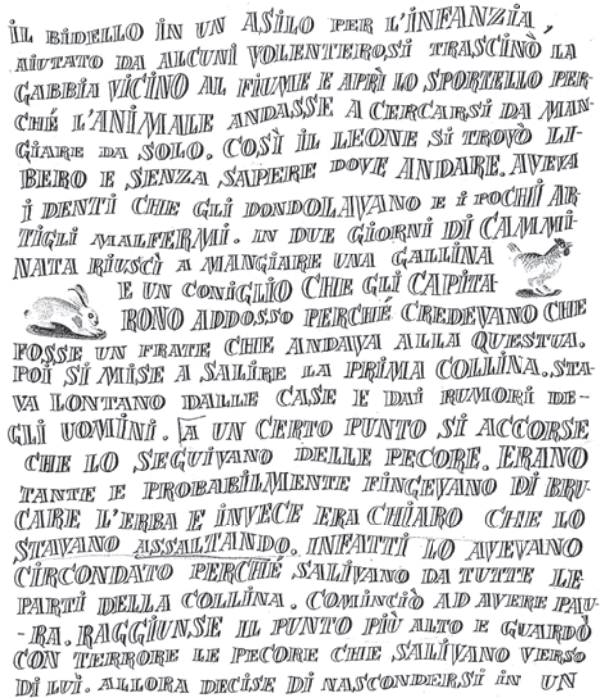 IL BIDELLO IN UN ASILO PER L'INFANZIA,
AIUTATO DA ALCUNI VOLENTEROSI TRASCINÒ LA
GABBIA VICINO AL FIUME E APRÌ LO SPORTELLO PER-
CHÉ L'ANIMALE ANDASSE A CERCARSI DA MAN-
GIARE DA SOLO. COSÌ IL LEONE SI TROVÒ LI-
BERO E SENZA SAPERE DOVE ANDARE. AVEVA
I DENTI CHE GLI DONDOLAVANO E I POCHI AR-
TIGLI MALFERMI. IN DUE GIORNI DI CAMMI-
NATA RIUSCÌ A MANGIARE UNA GALLINA
E UN CONIGLIO CHE GLI CAPITA-
RONO ADDOSSO PERCHÉ CREDEVANO CHE
FOSSE UN FRATE CHE ANDAVA ALLA QUESTUA.
POI SI MISE A SALIRE LA PRIMA COLLINA. STA-
VA LONTANO DALLE CASE E DAI RUMORI DE-
GLI UOMINI. A UN CERTO PUNTO SI ACCORSE
CHE LO SEGUIVANO DELLE PECORE. ERANO
TANTE E PROBABILMENTE FINGEVANO DI BRU-
CARE L'ERBA E INVECE ERA CHIARO CHE LO
STAVANO ASSALTANDO. INFATTI LO AVEVANO
CIRCONDATO PERCHÉ SALIVANO DA TUTTE LE
PARTI DELLA COLLINA. COMINCIÒ AD AVERE PAU-
-RA. RAGGIUNSE IL PUNTO PIÙ ALTO E GUARDÒ
CON TERRORE LE PECORE CHE SALIVANO VERSO
DI LUI. ALLORA DECISE DI NASCONDERSI IN UN